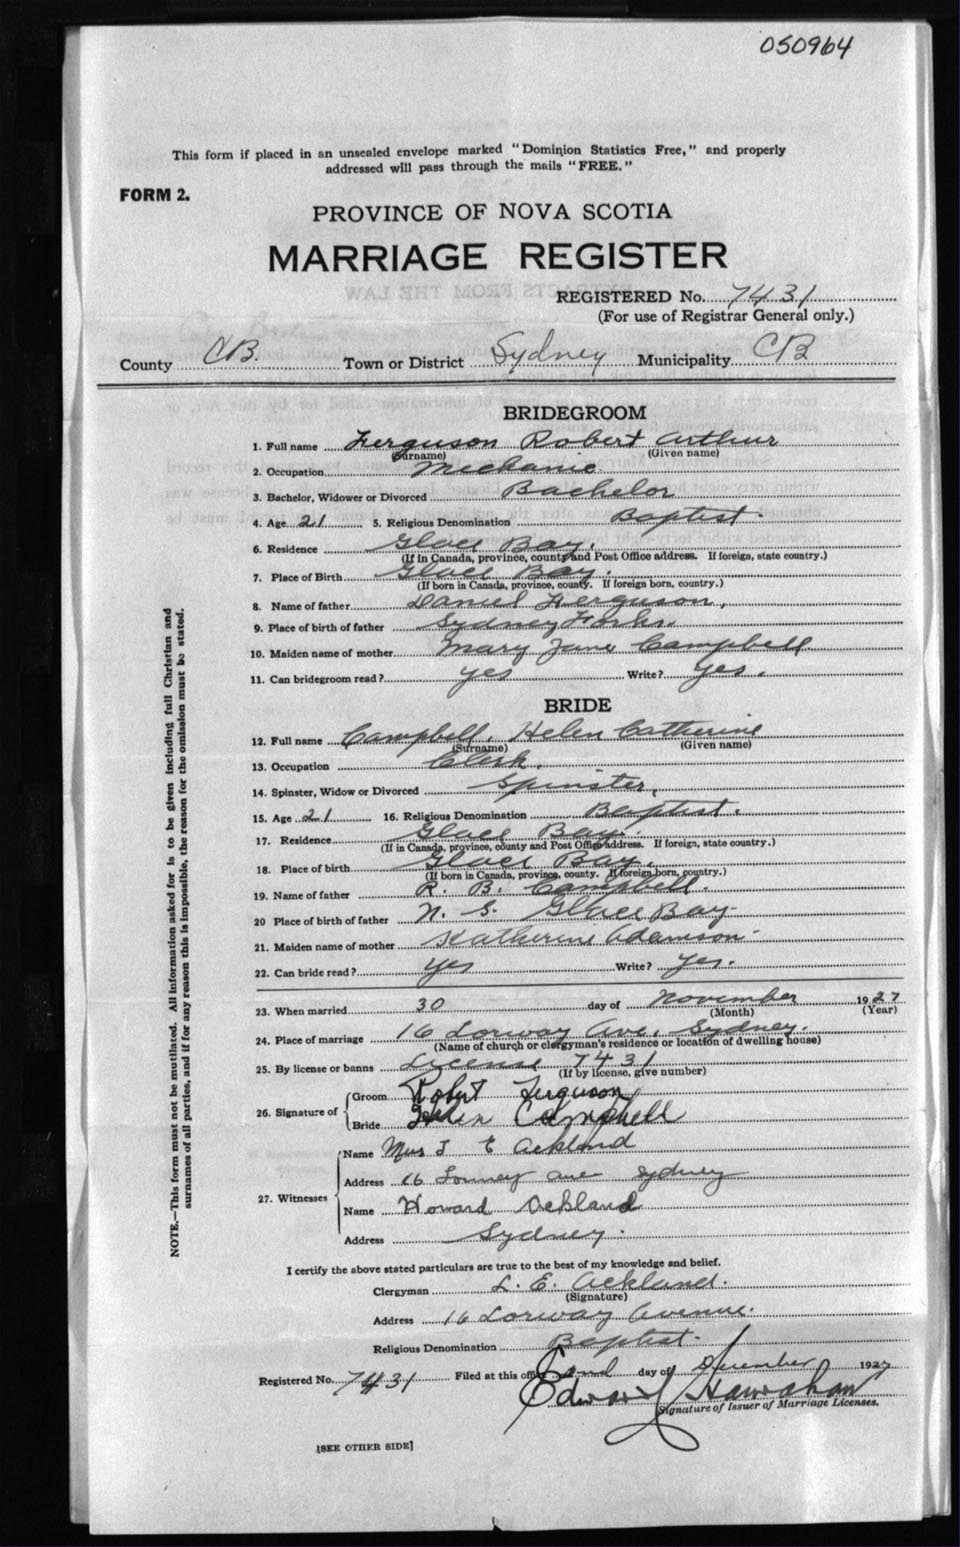 050964
This form if placed in an unsealed envelope marked "Dominion Statistics Free," and properly
addressed will pass through the mails "FREE."
FORM 2.
PROVINCE OF NOVA SCOTIA
MARRIAGE REGISTER
REGISTERED No. 7431
(For use of Registrar General only.)
County CB. Town or District Sydney Municipality CB
BRIDEGROOM
1. Full name Ferguson Robert Arthur
(Surname) (Given name)
2. Occupation Mechanic
3. Bachelor, Widower or Divorced Bachelor
4. Age 21 5. Religious Denomination Baptist.
6. Residence Glace Bay.
(If in Canada, province, county and Post Office address. If foreign, state country.)
7. Place of Birth Glace Bay.
(If born in Canada, province, county. If foreign born, country.)
8. Name of father Daniel Ferguson,
9. Place of birth of father Sydney Forks.
10. Maiden name of mother Mary Jane Campbell.
11. Can bridegroom read? yes Write? yes.
BRIDE
12. Full name Campbell, Helen Catherine
(Surname) (Given name)
13. Occupation Clerk.
14. Spinster, Widow or Divorced Spinster,
15. Age 21 16. Religious Denomination Baptist.
17. Residence Glace Bay.
(If in Canada, province, county and Post Office address. If foreign, state country.)
18. Place of birth Glace Bay.
(If born in Canada, province, county. If foreign born, country.)
19. Name of father R. B. Campbell.
20 Place of birth of father N. S. Glace Bay
21. Maiden name of mother Katherine Adamson
22. Can bride read? yes Write? yes.
23. When married 30 day of November 1927
(Month) (Year)
24. Place of marriage 16 Lorway Ave. Sydney.
(Name of church or clergyman's residence or location of dwelling house)
25. By license or banns License 7431
(If by license, give number)
26. Signature of
Groom Robert Ferguson
Bride Helen Campbell
27. Witnesses
Name Mrs L E Ackland
Address 16 Lorway ave Sydney
Name Howard Ackland
Address Sydney.
I certify the above stated particulars are true to the best of my knowledge and belief.
Clergyman L. E. Ackland.
(Signature)
Address 16 Lorway Avenue.
Religious Denomination Baptist.
Registered No. 7431 Filed at this office 2nd day of December 1927
Edward
Signature of Issuer of Marriage Licenses.
[SEE OTHER SIDE]
NOTE.—This form must not be mutilated. All information asked for is to be given including full Christian and
surnames of all parties, and if for any reason this is impossible, the reason for the omission must be stated.